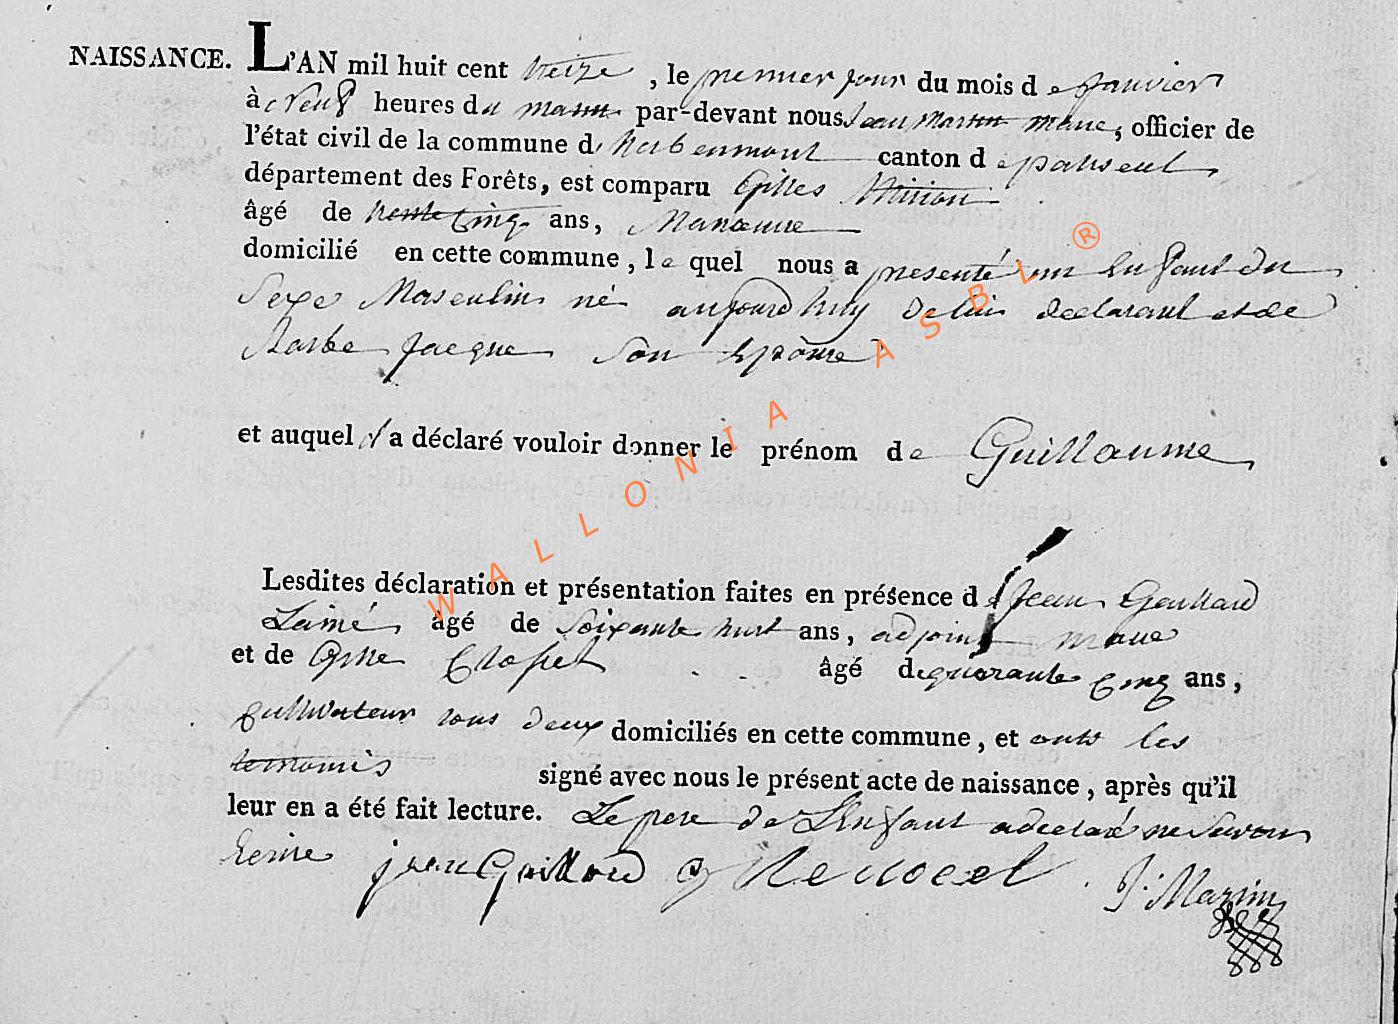 NAISSANCE. L'AN mil huit cent treize, le premier jour du mois de janvier
à neuf heures du matin par-devant nous Jean Martin maire, officier de
l'état civil de la commune d'herbeumont canton de paliseul
département des Forêts, est comparu Gilles
âgé de trente cinq ans, Manœuvre
domicilié en cette commune, le quel nous a presenté un Enfant du
Sexe Masculin né aujourd huy de lui declarant et de
Barbe jacque Son Epouse
et auquel il a déclaré vouloir donner le prénom de Guillaume
Lesdites déclaration et présentation faites en présence de Jean Gaillard
Lainé, âgé de Soixante huit ans, adjoint maire
et de âgé de quarante cinq ans,
cultivateur tous deux domiciliés en cette commune, et ont les
temoins signé avec nous le présent acte de naissance, après qu'il
leur en a été fait lecture. Le pere de L'Enfant a declaré ne Savoir
jean Gaillard J. Martin
WALLONIA ASBL ®